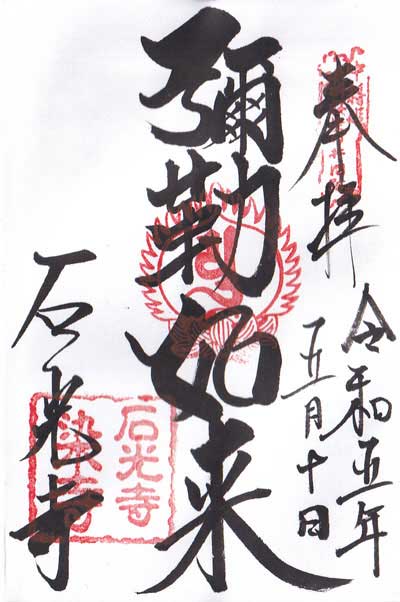 奉拝
令和五年
五月十日
彌勒如来
石光寺
石光寺
染寺